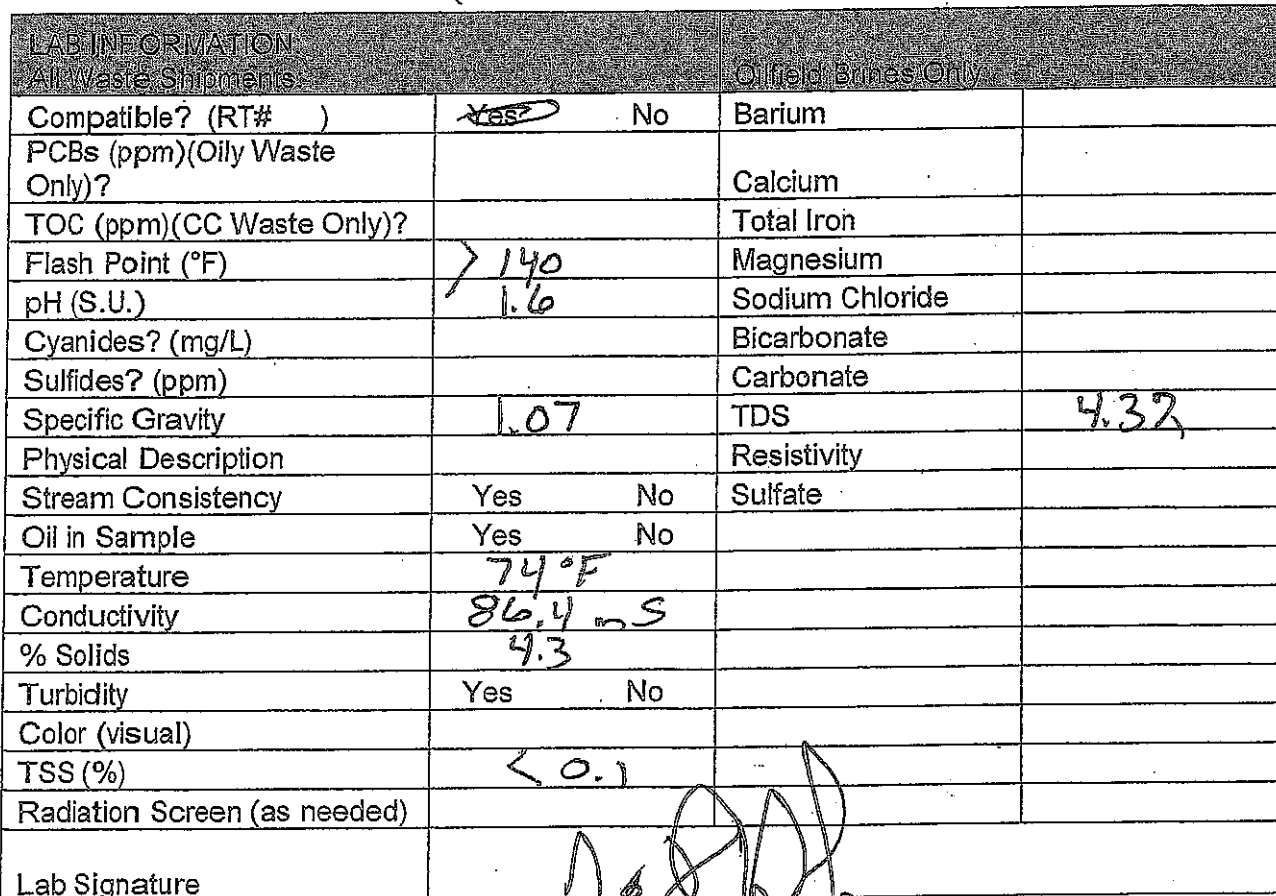 LAB INFORMATION
All Waste Shipments Oilfield Brines Only
Compatible? (RT# ) Yes No Barium
PCBs (ppm)(Oily Waste
Only)? Calcium
TOC (ppm)(CC Waste Only)? Total Iron
Flash Point (°F) > 140 Magnesium
pH (S.U.) 1.6 Sodium Chloride
Cyanides? (mg/L) Bicarbonate
Sulfides? (ppm) Carbonate
Specific Gravity 1.07 TDS
Physical Description Resistivity
Stream Consistency Yes No Sulfate
Oil in Sample Yes No
Temperature 74 °F
Conductivity 86.4 mS
% Solids 4.3
Turbidity Yes No
Color (visual)
TSS (%) < 0.1
Radiation Screen (as needed)
Lab Signature